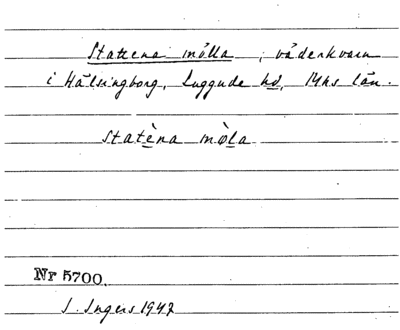 Statena mölla, väderkvarn
i Hälsingborg, Luggude hd, Mhs län.
statèna mòla
Nr 5700.
I. Ingers 1947